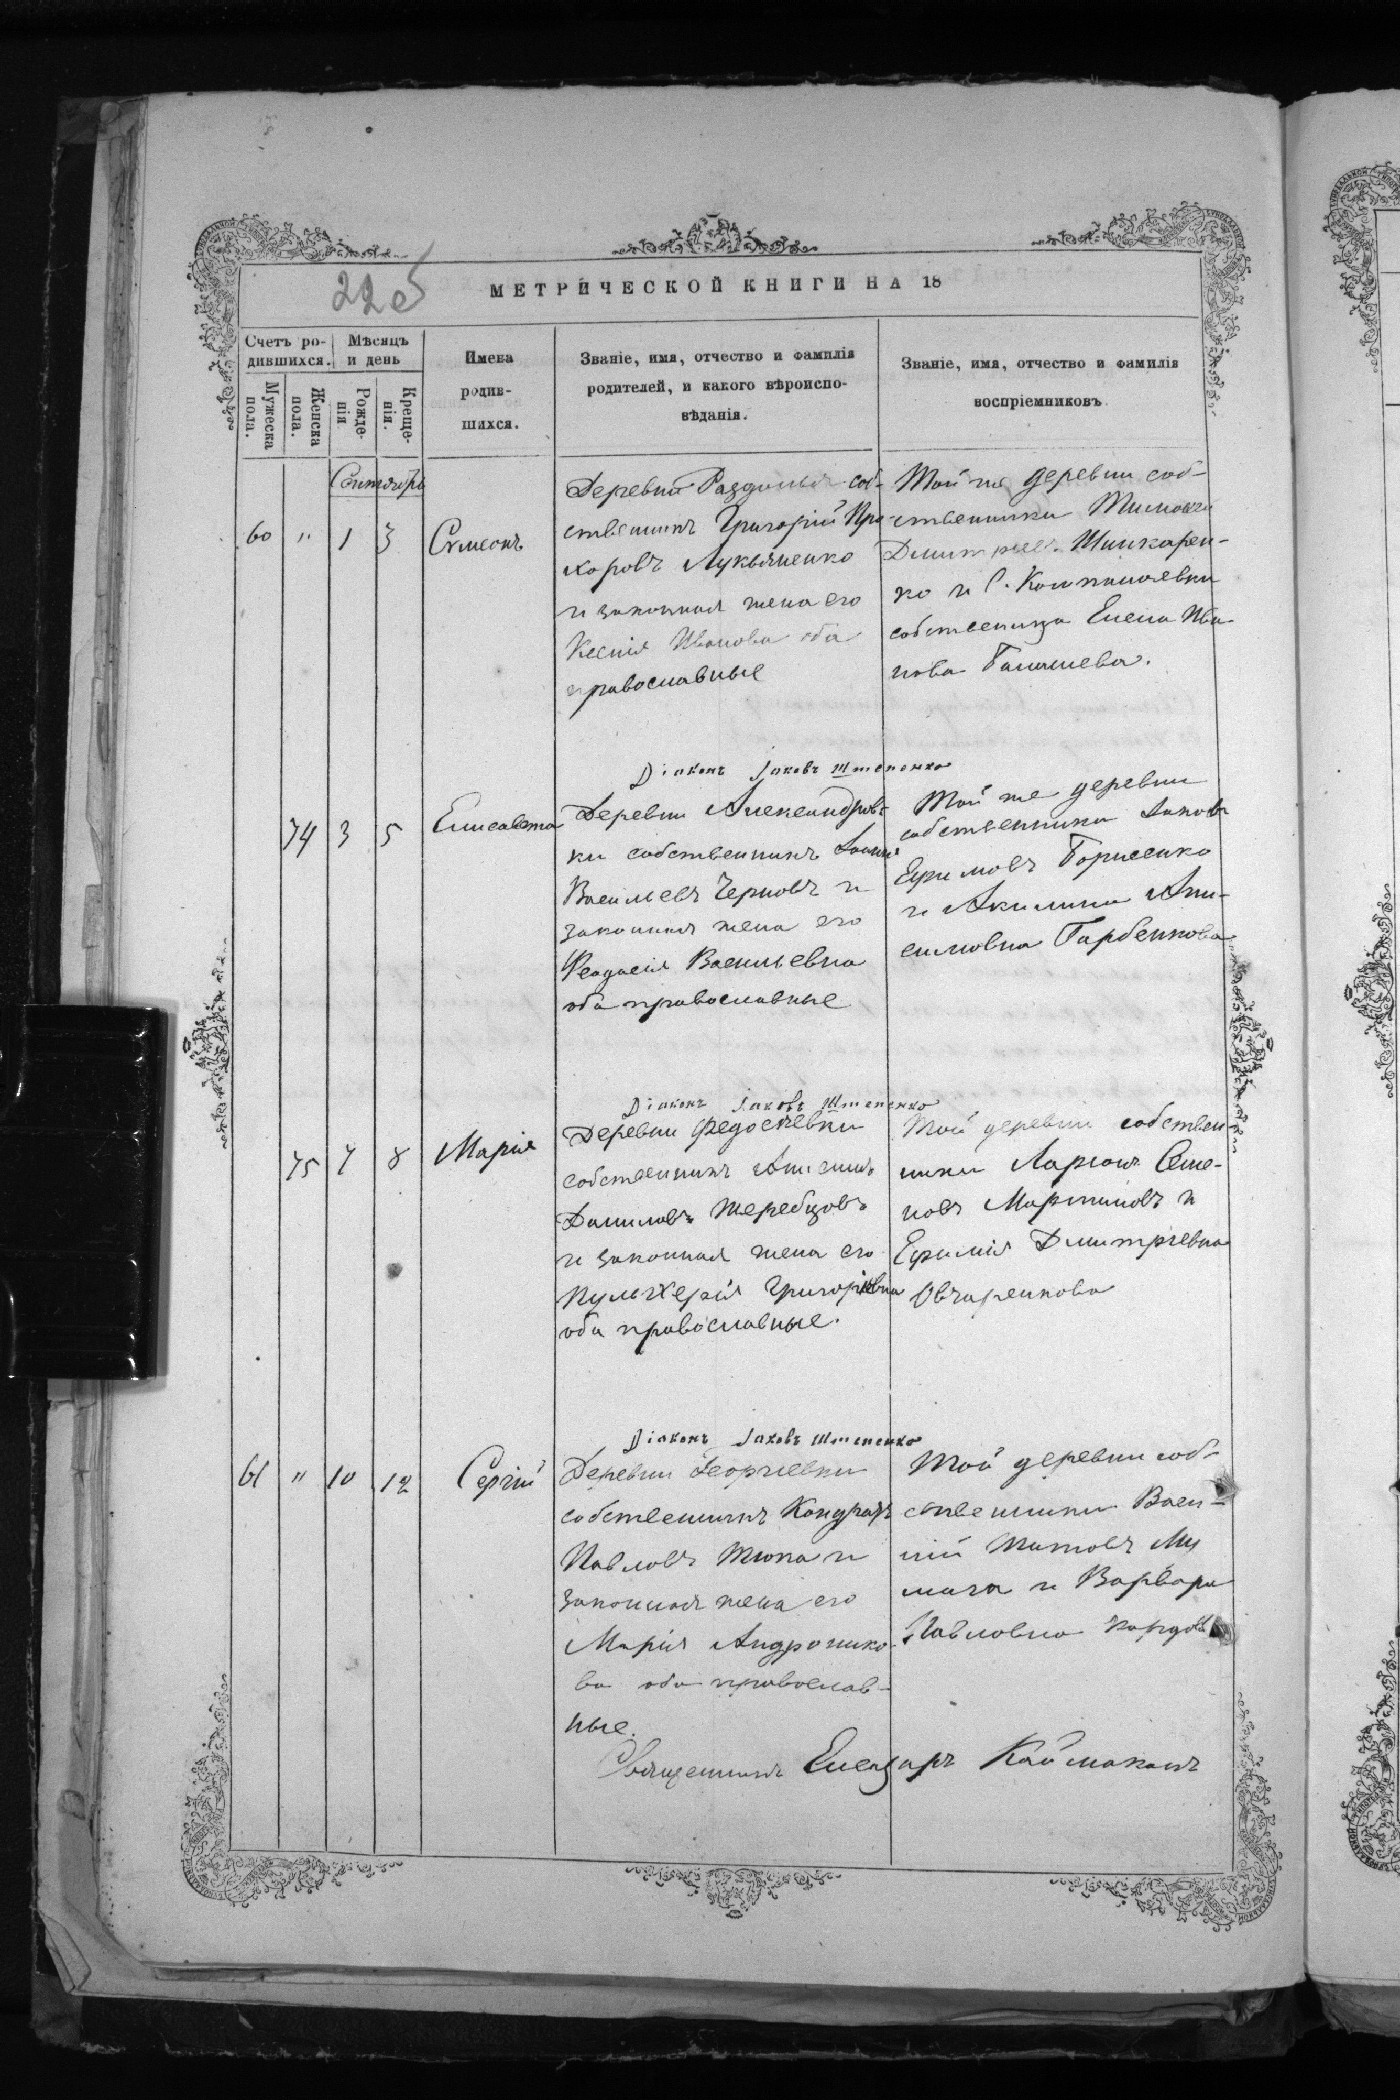 22об
МЕТРИЧЕСКОЙ КНИГИ НА 18
Счетъ ро-
дившихся.
Мѣсяцъ
и день
Имена
родив-
шихся.
Званіе, имя, отчество и фамилія
родителей, и какого вѣроиспо-
вѣданія.
Званіе, имя, отчество и фамилія
воспріемниковъ.
Мужеска
пола.
Женска
пола.
Рожде-
нія
Креще-
нія.
Сентябрь
60 " 1 3
Симеонъ
Деревни соб-
ственникъ Григорій Про-
хоровъ Лукьяненко
и законная жена его
Ксенія Иванова оба
православные
Той же деревни соб-
ственники
Дмитріевъ Шинкарен-
ко и С.
собственица Елена Ива
нова
Діаконъ Іаковъ Штепенко
74 3 5
Елисавета
Деревни Александров-
ки собственникъ
Васильевъ Черновъ и
законная жена его
Феодосія Васильевна
оба православные
Той же деревни
собственники Іаковъ
Ефимовъ Борисенко
и Акилина Ани-
симовна Гарбенкова
Діаконъ Іаковъ Штепенко
75 7 8
Марія
Деревни Федосѣевки
собственникъ Анисимъ
Даниловъ Жеребцовъ
и законная жена его
Пульхерія Григоріевна
оба православные.
Той деревни собствен
ники Ларіонъ Семе-
новъ Мартиновъ и
Ефимія Дмитріевна
Овчаренкова
Діаконъ Іаковъ Штепенко
61 " 10 12
Сергій
Деревни Георгіевки
собственникъ Кондратъ
Павловъ Тюпа и
законная жена его
Марія Андронико-
ва оба православ-
ные.
Той деревни соб-
ственники Васи-
лій Титовъ
и Варвара
Павловна
Священникъ Елеазаръ Каймаканъ